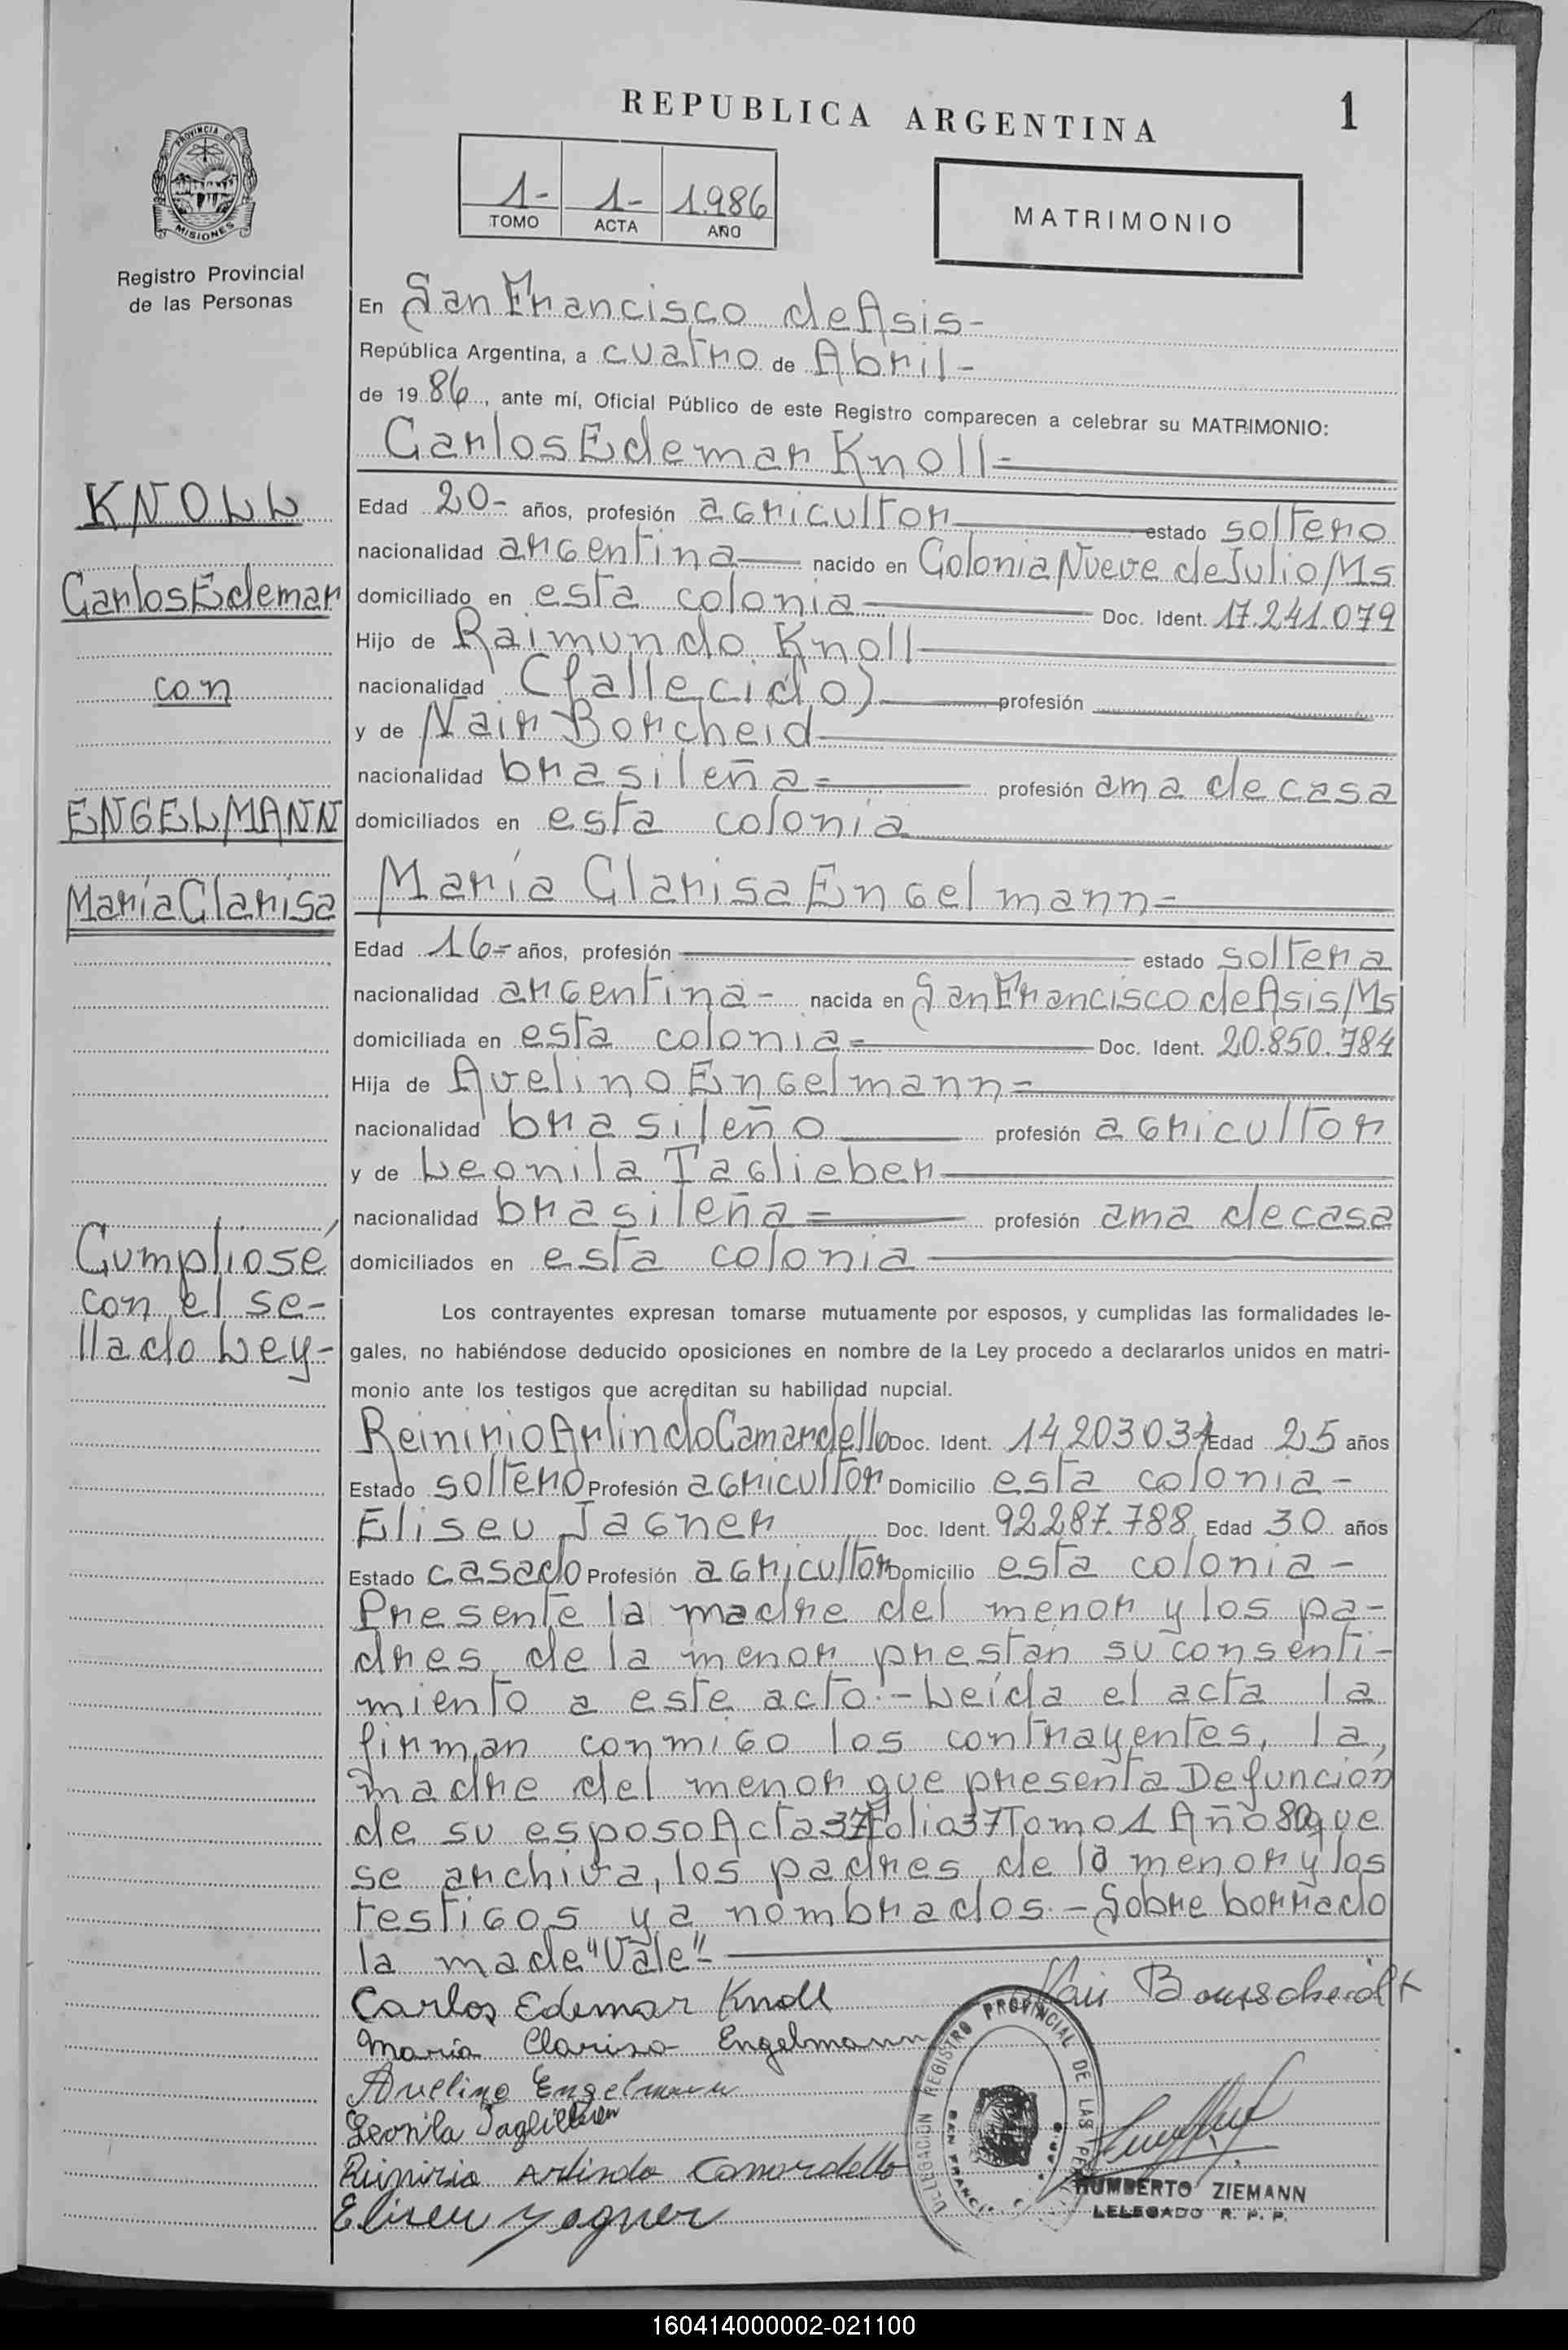 REPUBLICA ARGENTINA
1
PROVINCIA DE
MISIONES
Registro Provincial
de las Personas
1- 1- 1.986
TOMO ACTA AÑO
MATRIMONIO
En San Francisco de Asis-
República Argentina, a cuatro de Abril-
de 19 86, ante mí, Oficial Público de este Registro comparecen a celebrar su MATRIMONIO:
Carlos Edemar Knoll=
Edad 20- años, profesión agricultor estado soltero
nacionalidad argentina nacido en Colonia Nueve de Julio/Ms
domiciliado en esta colonia Doc. Ident. 17.241.079
Hijo de Raimundo Knoll
nacionalidad (fallecido) profesión
y de Nair Borcheid
nacionalidad brasileña= profesión ama de casa
domiciliados en esta colonia
María Clarisa Engelmann=
Edad 16= años, profesión estado soltera
nacionalidad argentina- nacida en San Francisco de Asis/Ms
domiciliada en esta colonia= Doc. Ident. 20.850.784
Hija de Avelino Engelmann=
nacionalidad brasileño profesión agricultor
y de Leonila Taglieber
nacionalidad brasileña= profesión ama de casa
domiciliados en esta colonia
KNOLL
Carlos Edemar
con
ENGELMANN
María Clarisa
Cumpliosé
con el se-
llado Ley-
Los contrayentes expresan tomarse mutuamente por esposos, y cumplidas las formalidades le-
gales, no habiéndose deducido oposiciones en nombre de la Ley procedo a declararlos unidos en matri-
monio ante los testigos que acreditan su habilidad nupcial.
Reinirio Arlindo Camardello Doc. Ident. 14.203.034 Edad 25 años
Estado soltero Profesión agricultor Domicilio esta colonia-
Eliseu Jagner Doc. Ident. 92.287.788 Edad 30 años
Estado casado Profesión agricultor Domicilio esta colonia-
Presente la madre del menor y los pa-
dres de la menor prestan su consenti-
miento a este acto.-Leída el acta la
firman conmigo los contrayentes, la,
madre del menor que presenta Defunción
de su esposo Acta 37 Folio 37 Tomo 1 Año 80 que
se archiva, los padres de la menor y los
testigos ya nombrados.-Sobre borrado
la made "Vale"-
Carlos Edemar Knoll
Nair Bourscheidt
Maria Clarisa Engelmann
Avelino Engelmann
Leonila Taglieber
Reinirio Arlindo Camardello
Eliseu Yagner
DELEGACION REGISTRO PROVINCIAL DE LAS
SAN FRANCI
HUMBERTO ZIEMANN
DELEGADO R. P. P.
160414000002-021100